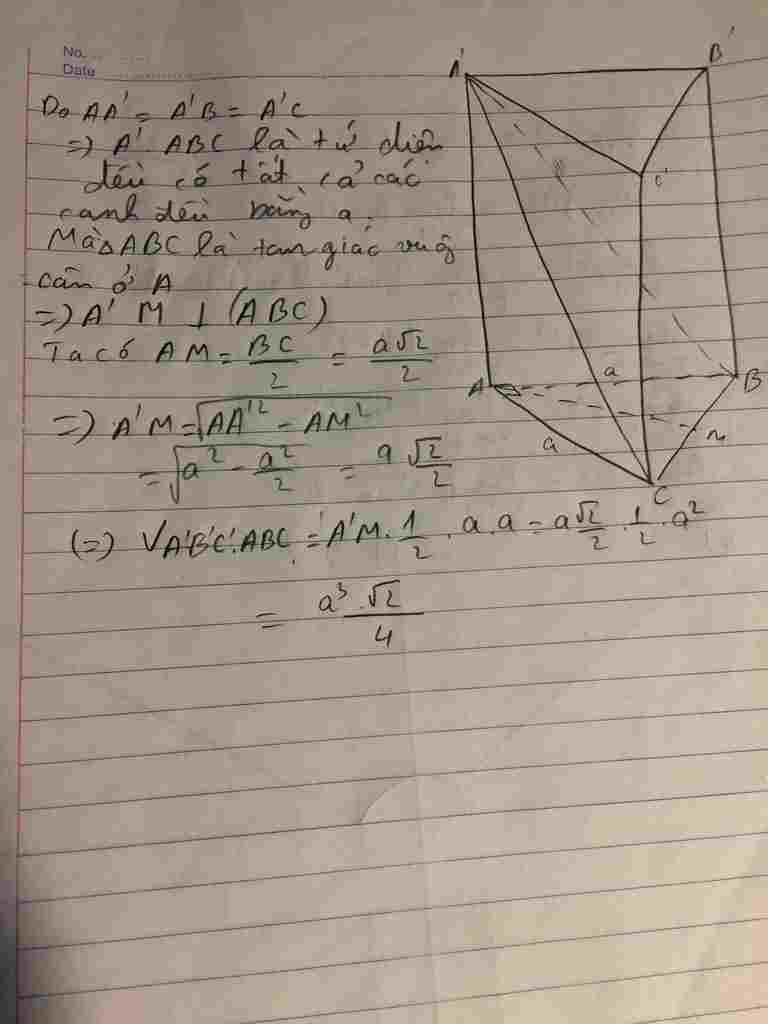 No.
Date
Do AA' = A'B = A'C
=> A'.ABC là tứ diện
đều có tất cả các
cạnh đều bằng a.
Mà △ABC là tam giác vuông
cân ở A
=> A'M ⊥ (ABC)
Ta có AM = BC/2 = a√2/2
=> A'M = √(AA'² - AM²)
= √(a² - a²/2) = a√2/2
(=) VA'B'C'.ABC = A'M . 1/2 . a . a = a√2/2 . 1/2 . a²
= a³.√2/4
A'
B'
C'
A
a
B
a
m
C